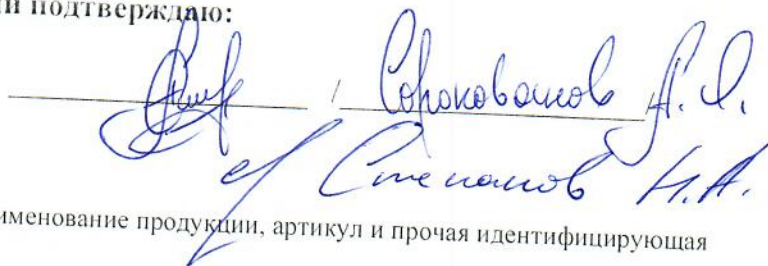 подтверждаю:
/ Сороковиков А. И.
Степанов Н.А.
именование продукции, артикул и прочая идентифицирующая